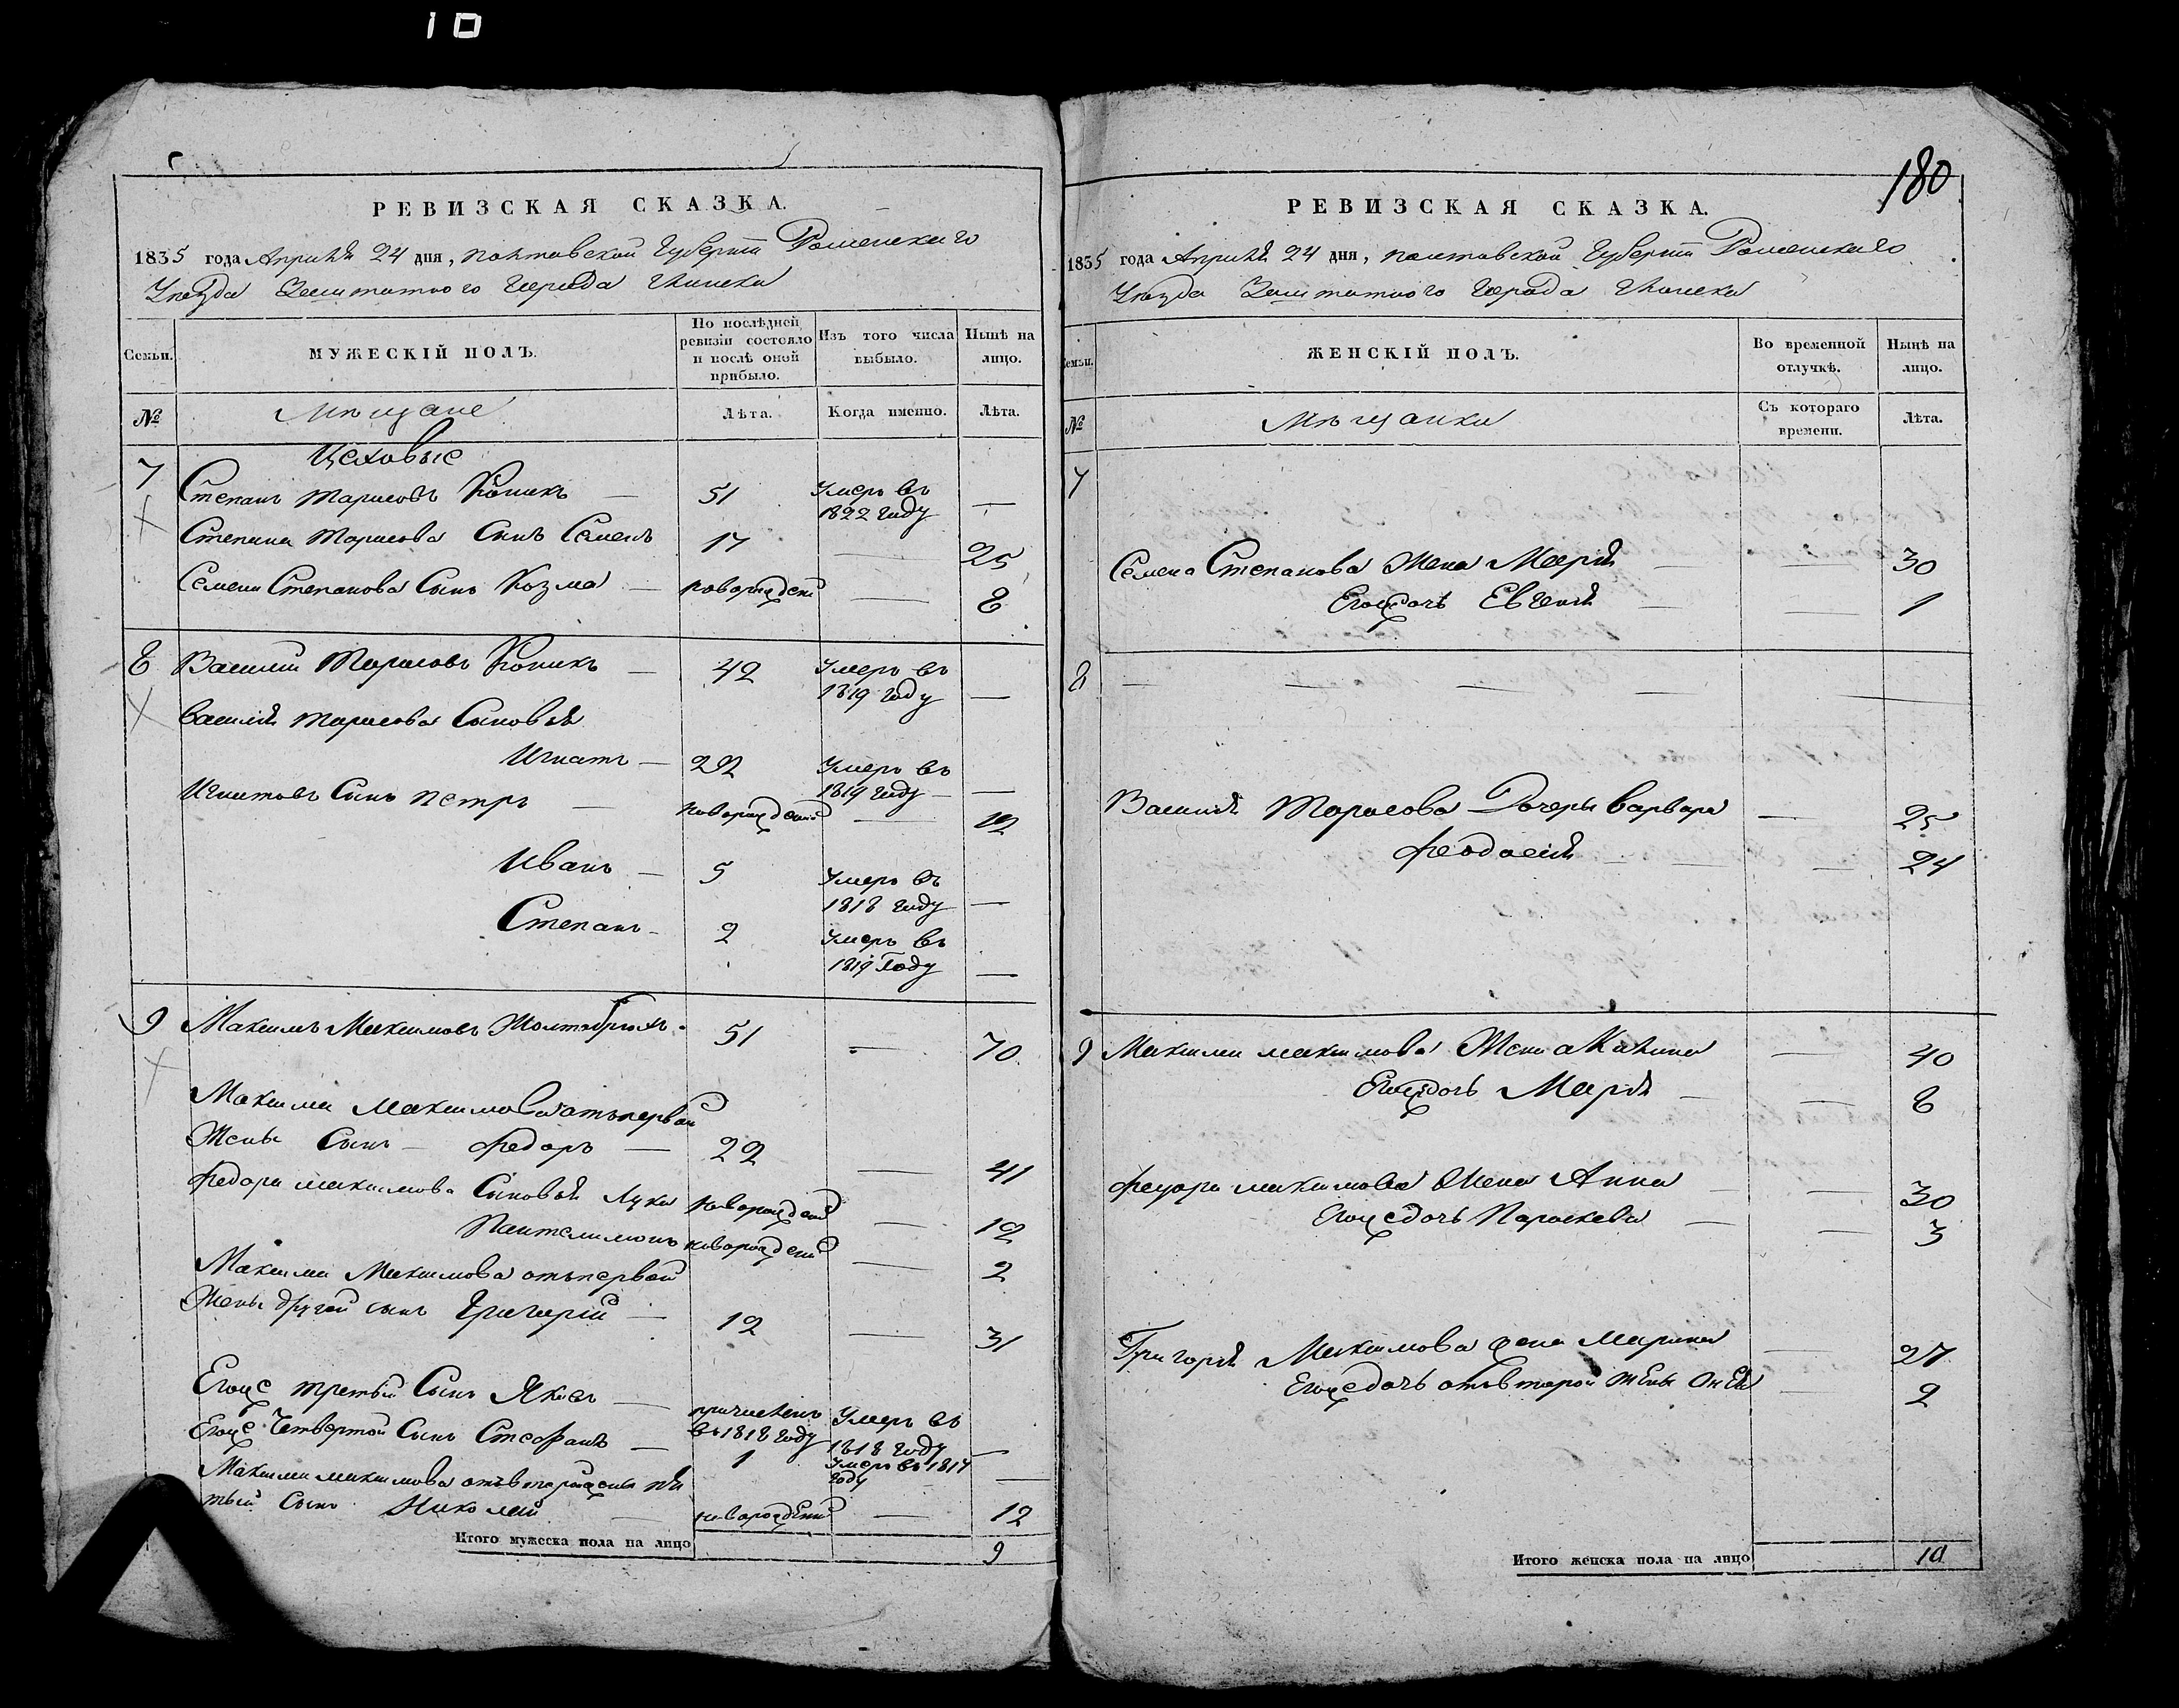 10
РЕВИЗСКАЯ СКАЗКА.
1835 года Апреля 24 дня, полтавской Губернии Роменскаго
Уезда Заштатного Города Глинска
Семьи. МУЖЕСКІЙ ПОЛЪ. По послѣдней ревизіи состояло и послѣ оной прибыло. Изъ того числа выбыло. Нынѣ на лицо.
№ Мѣщане Лѣта. Когда именно. Лѣта.
Цеховые
7 Степанъ Тарасовъ Коникъ — 51 Умеръ въ 1822 году —
Степана Тарасова Сынъ Семенъ 17 — 25
Семена Степанова Сынъ Козма — новорожденъ — 8
8 Василий Тарасовъ Коникъ — 42 Умеръ въ 1819 году —
Василія тарасова Сыновья
Игнатъ — 22 Умеръ въ 1819 году —
Игнатовъ Сынъ петръ — новорожденъ — 12
Иванъ — 5 Умеръ въ 1818 году —
Степанъ — 2 Умеръ въ 1819 Году —
9 Максимъ Максимовъ 51 — 70
Максима Максимова отъ первой
Жены Сынъ — Федоръ — 22 — 41
Федора максимова Сыновья Лука новорожден — 12
Пантелимонъ новорожден — 2
Максима Максимова отъ первой
Жены другой сынъ Григорій — 12 — 31
Егоже третьій Сынъ Яковъ — причисленъ въ 1818 году Умеръ въ 1818 году —
Егоже Четвертой Сынъ Стефанъ — 1 Умеръ въ 1817 году —
Максима максимова отъ второй жены пя
тый Сынъ Николай — новорожден — 12
Итого мужеска пола на лицо 9
180
РЕВИЗСКАЯ СКАЗКА.
1835 года Апреля 24 дня, полтавской Губернии Роменскаго
Уезда Заштатного Города Глинска
Семьи. ЖЕНСКІЙ ПОЛЪ. Во временной отлучкѣ. Нынѣ на лицо.
№ Мѣщанки Съ котораго времени. Лѣта.
7
Семена Степанова Жена Марія — — 30
Егождочь Евгенія — — 1
8 — — — — —
Василія Тарасова Дочери варвара — 25
Феодосія — — 24
9 Максима максимова Жена Акилина — 40
Егождочь Марія — — 8
Федора максимова Жена Анна — — 30
Егожедочь Параскева — — 3
Григорія Максимова жена Марина — 27
Егожедочь отъ второй жены — 2
Итого женска пола на лицо 10